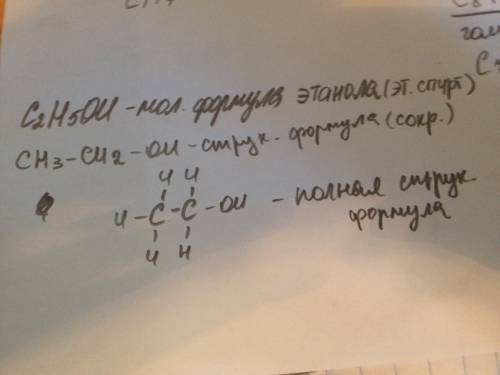 C2H5OH - мол. формула этанола (эт. спирт)
CH3-CH2-OH - струк. формула (сокр.)
H H
H - C - C - OH - полная струк.
формула
H H